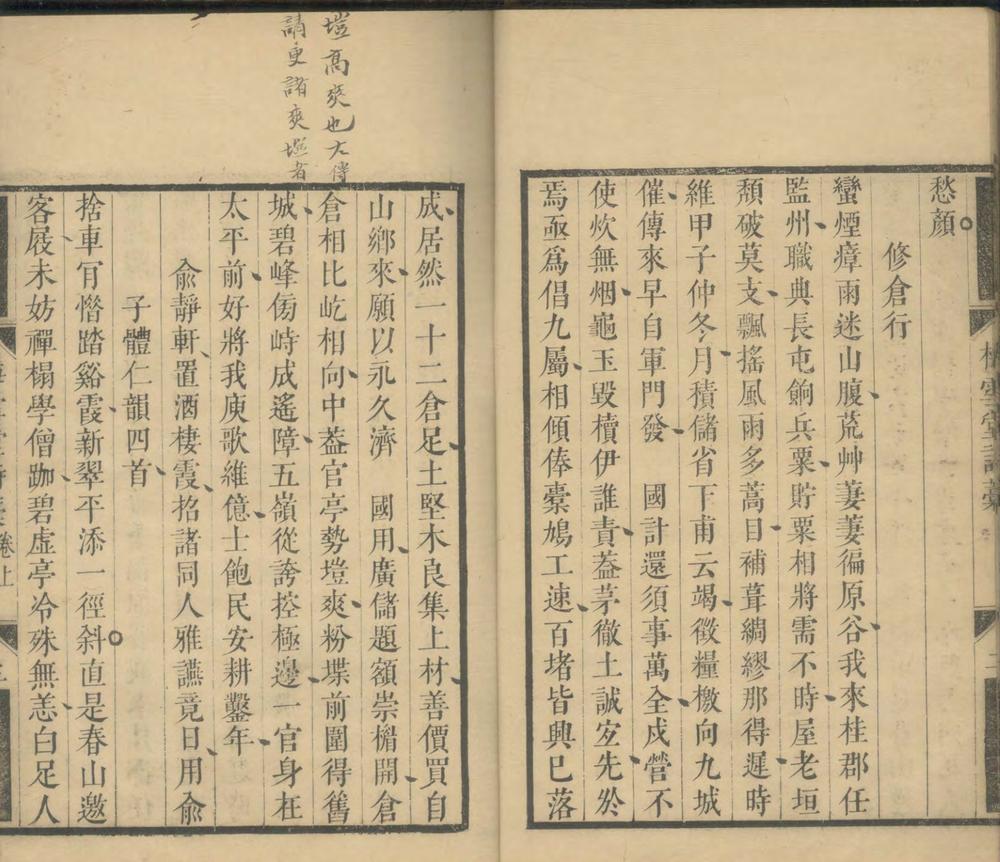 愁顏
修倉行
蠻煙瘴雨迷山腹荒艸萋萋徧原谷我來桂郡任
監州職典長屯餉兵粟貯粟相將需不時屋老垣
頹破莫支飄搖風雨多蒿目補葺綢繆那得遲時
維甲子仲冬月積儲省下甫云竭徵糧檄向九城
催傳來早自軍門發　國計還須事萬全戍營不
使炊無烟龜玉毀櫝伊誰責葢茅徹土誠宐先於
焉亟爲倡九屬相傾俸槖鳩工速百堵皆興已落
塏高爽也大傳
請更諸爽塏者
成居然一十二倉足土堅木良集上材善價買自
山鄉來願以永久濟　國用廣儲題額崇楣開倉
倉相比屹相向中葢官亭勢塏爽粉堞前圍得舊
城碧峰傍峙成遙障五嶺從誇控極邊一官身在
太平前好將我庾歌維億士飽民安耕鑿年
俞靜軒置酒棲霞招諸同人雅讌竟日用俞
子體仁韻四首
捨車肎憯踏谿霞新翠平添一徑斜直是春山邀
客屐未妨禪榻學僧跏碧虛亭冷殊無恙白足人
卷上